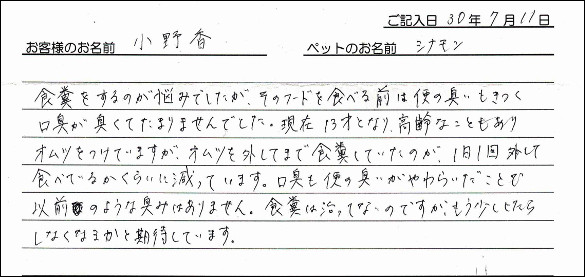 ご記入日 30年 7月 11日
お客様のお名前 小野香 ペットのお名前 シナモン
食糞をするのが悩みでしたが、そのフードを食べる前は便の臭いもきつく
口臭が臭くてたまりませんでした。現在13才となり、高齢なこともあり
オムツをつけていますが、オムツを外してまで食糞していたのが、1日1回外して
食べているかくらいに減っています。口臭も便の臭いがやわらいだことで
以前のような臭みはありません。食糞は治ってないのですが、もう少ししたら
しなくなるかと期待しています。